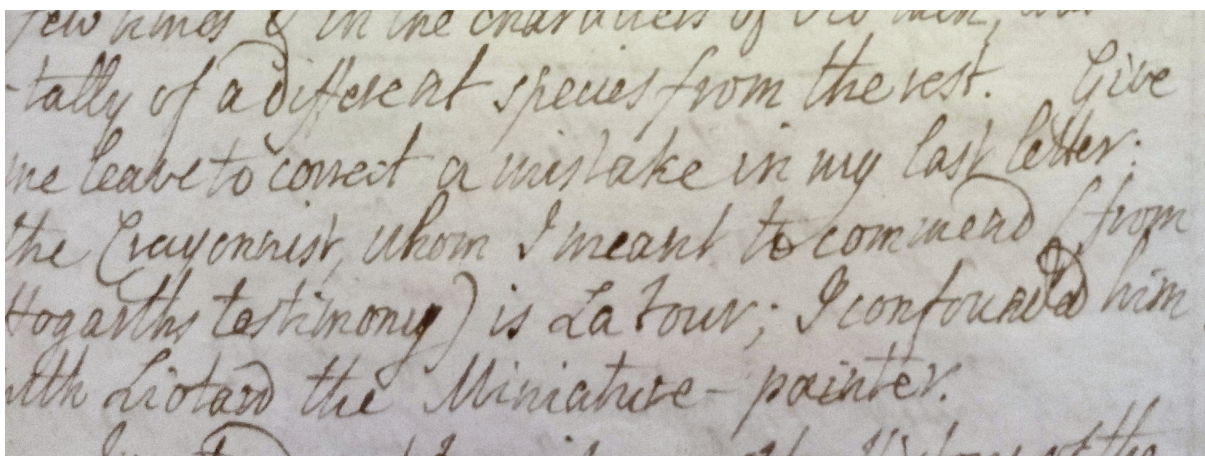 few times & in the characters of two men,
-tally of a different species from the rest. Give
me leave to correct a mistake in my last letter:
the Crayonnist, whom I meant to commend (from
Hogarths testimony) is La Tour; I confounded him
with Liotard the Miniature-painter.